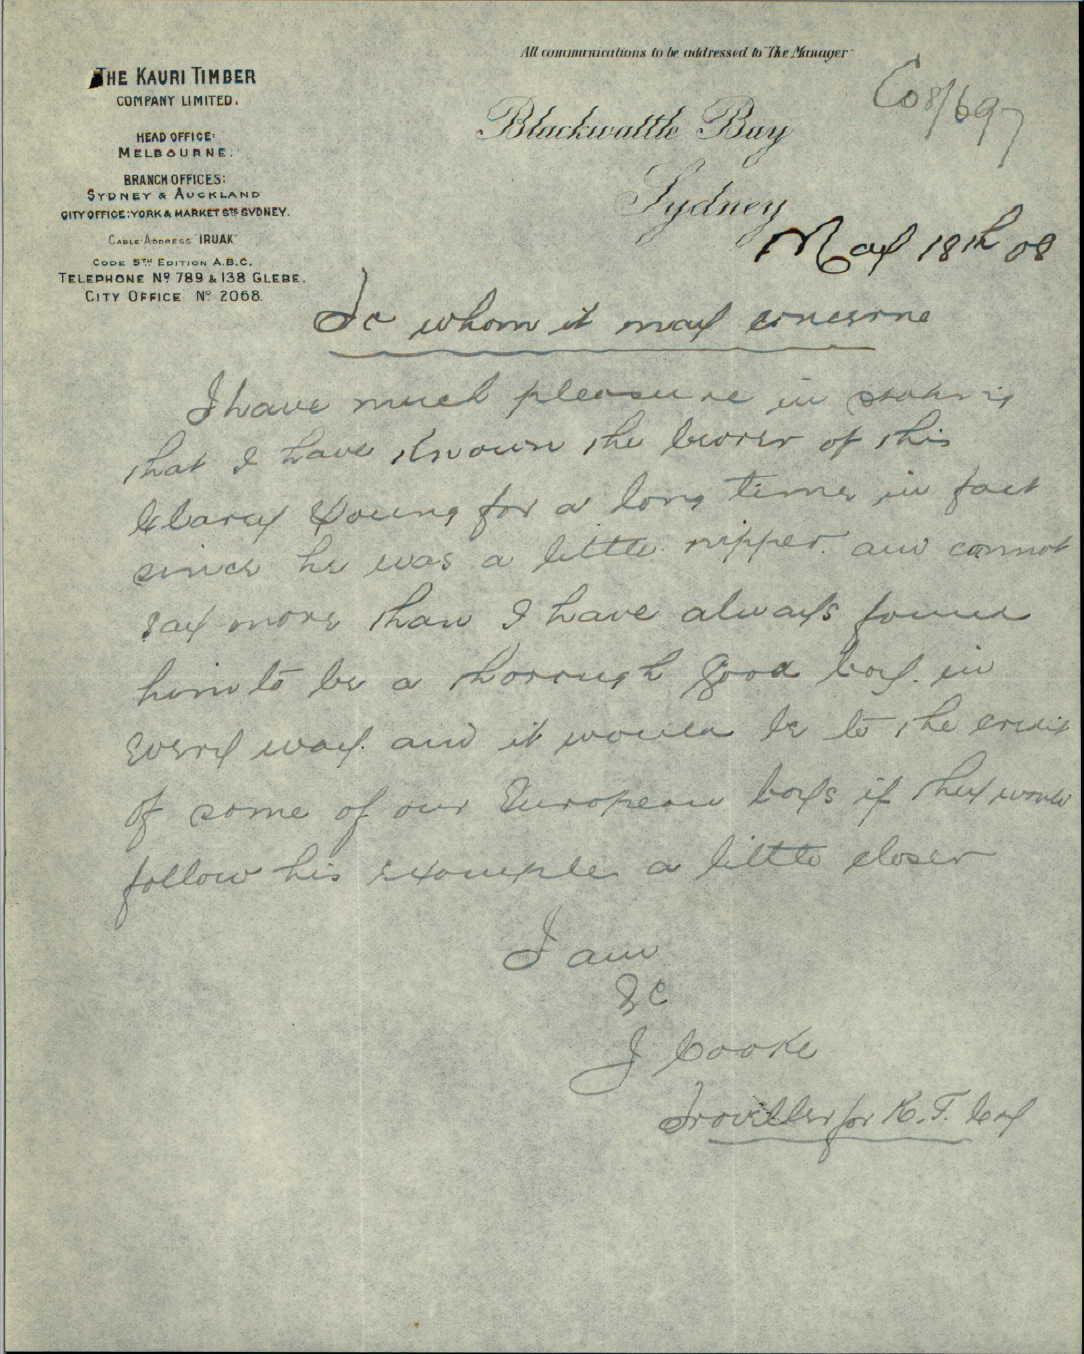 All communications to be addressed to "The Manager"
THE KAURI TIMBER
COMPANY LIMITED.
HEAD OFFICE:
MELBOURNE.
BRANCH OFFICES:
SYDNEY & AUCKLAND
CITY OFFICE: YORK & MARKET STS SYDNEY.
CABLE ADDRESS "IRUAK"
CODE 5TH EDITION A.B.C.
TELEPHONE NO 789 & 138 GLEBE.
CITY OFFICE NO 2068.
C08/697
Blackwattle Bay
Sydney
May 18th 08
To whom it may concerne
I have much pleasure in stating
that I have known the bearer of this
Clary Young for a long time in fact
since he was a little nipper. and cannot
say more than I have always found
him to be a thorough good boy. in
every way. and it would be to the credit
of some of our European boys if they would
follow his example a little closer
I am
&c
J Cooke
Traviller for K.T. Coy